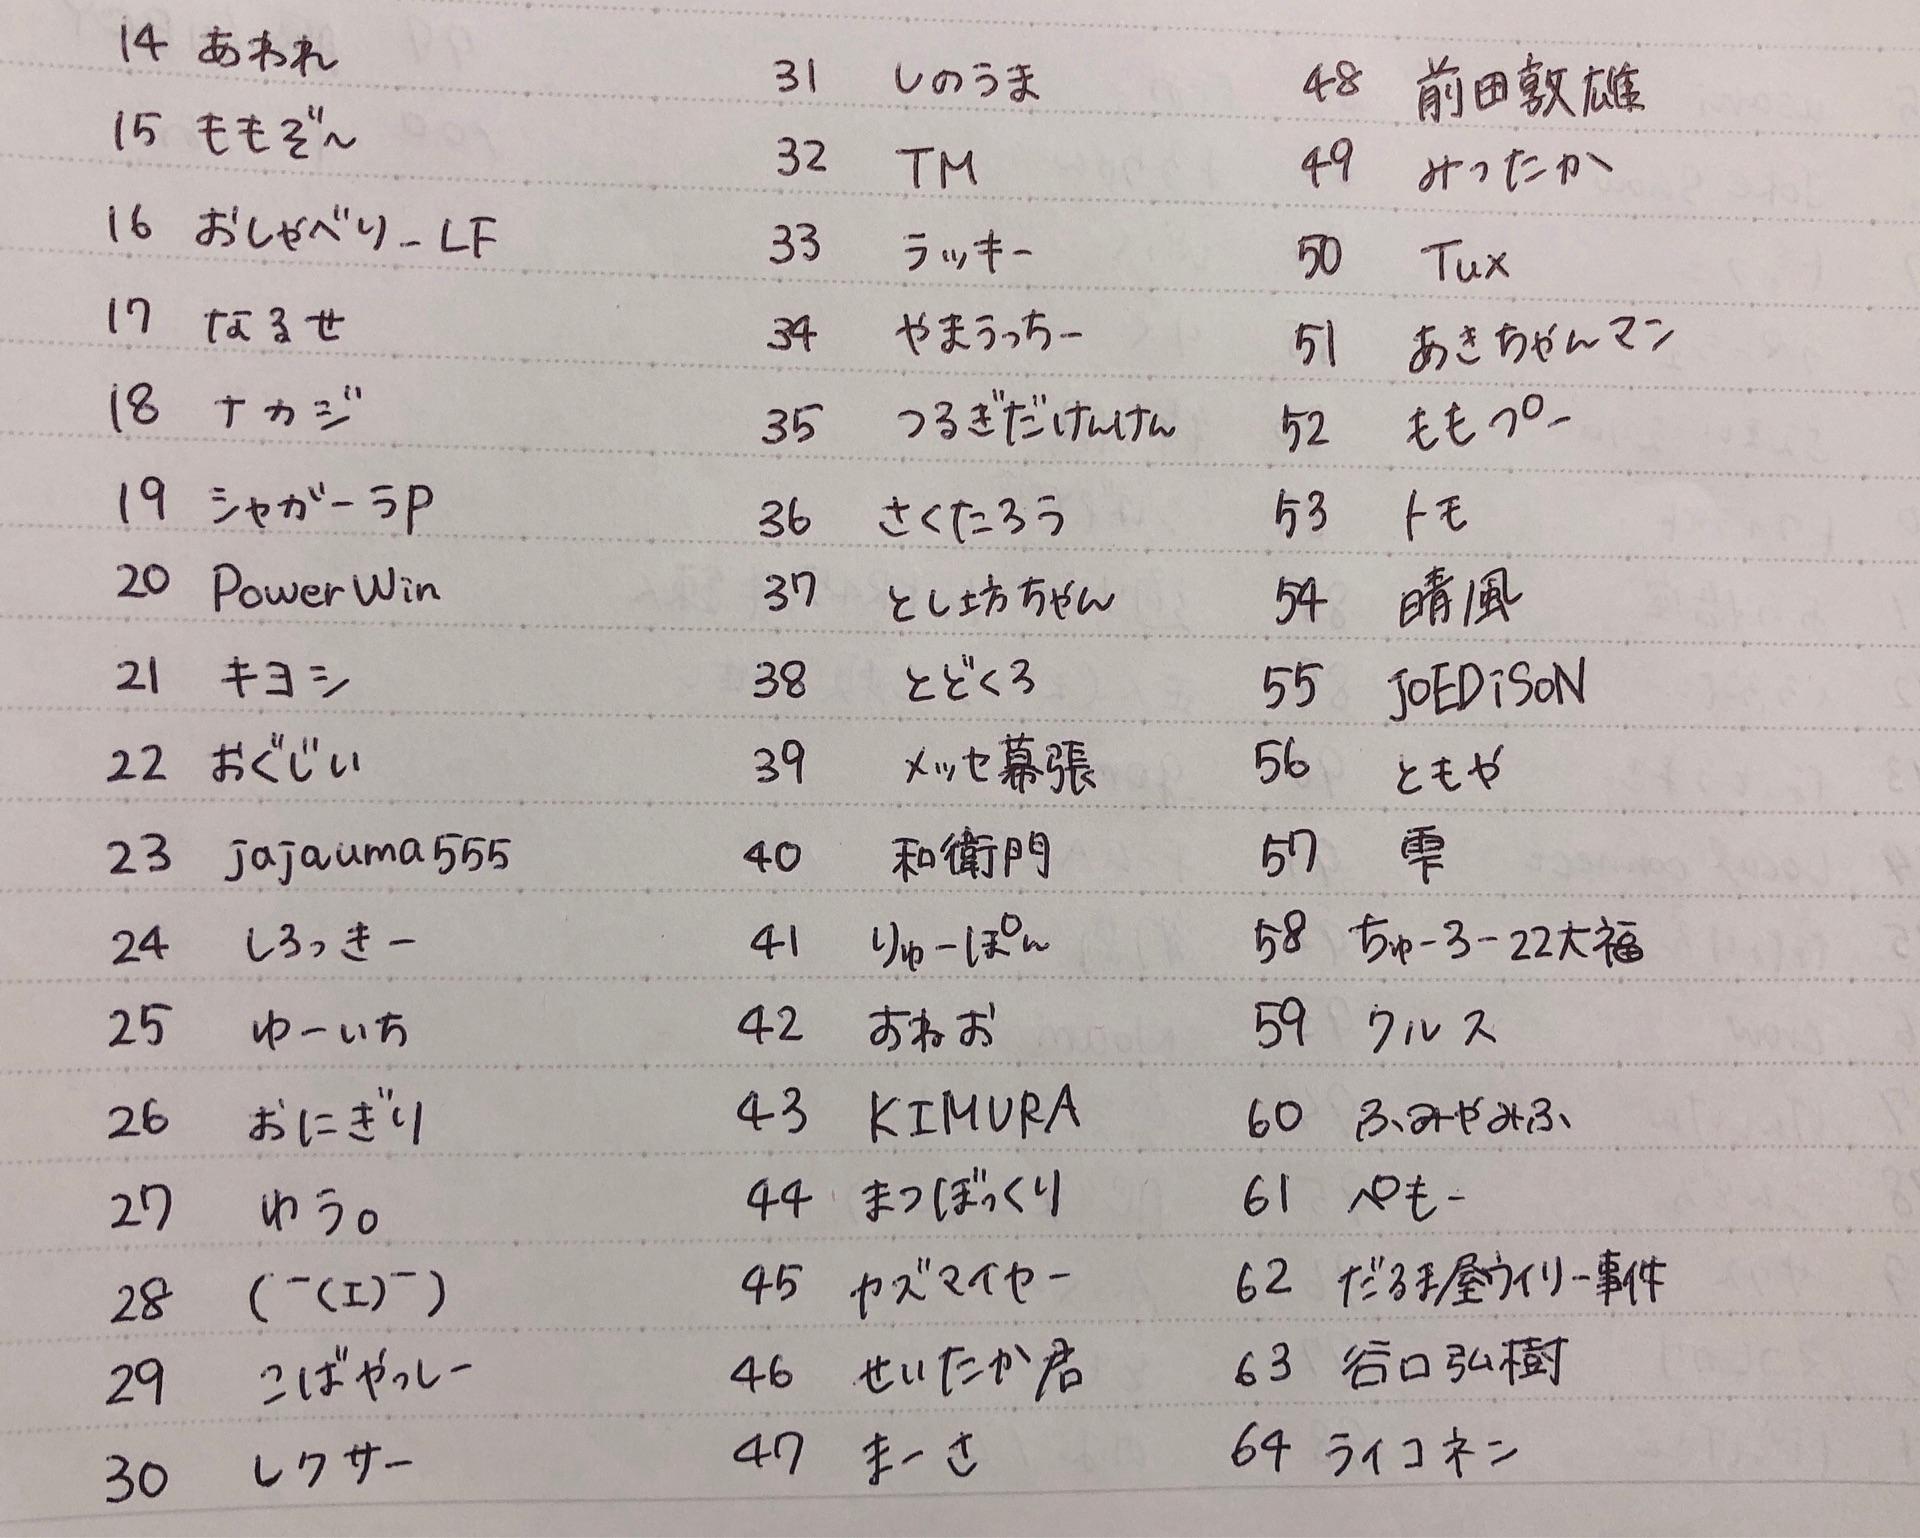 14 あわれ
15 ももぞん
16 おしゃべり_LF
17 なるせ
18 ナカジ
19 シャガーラP
20 PowerWin
21 キヨシ
22 おぐじい
23 jajauma555
24 しろっきー
25 ゆーいち
26 おにぎり
27 ゆう。
28 (¯(エ)¯)
29 こばやっしー
30 レクサー
31 しのうま
32 TM
33 ラッキー
34 やまうっちー
35 つるぎだけんけん
36 さくたろう
37 とし坊ちゃん
38 とどくろ
39 メッセ幕張
40 和衛門
41 りゅーぽん
42 おねお
43 KIMURA
44 まつぼっくり
45 ヤズマイヤー
46 せいたか君
47 まーさ
48 前田敦雄
49 みったか
50 Tux
51 あきちゃんマン
52 ももプー
53 トモ
54 晴風
55 JOEDiSON
56 ともや
57 雫
58 ちゅーろー22大福
59 クルス
60 ふみやみふ
61 ぺもー
62 だるま屋ウイリー事件
63 谷口弘樹
64 ライコネン